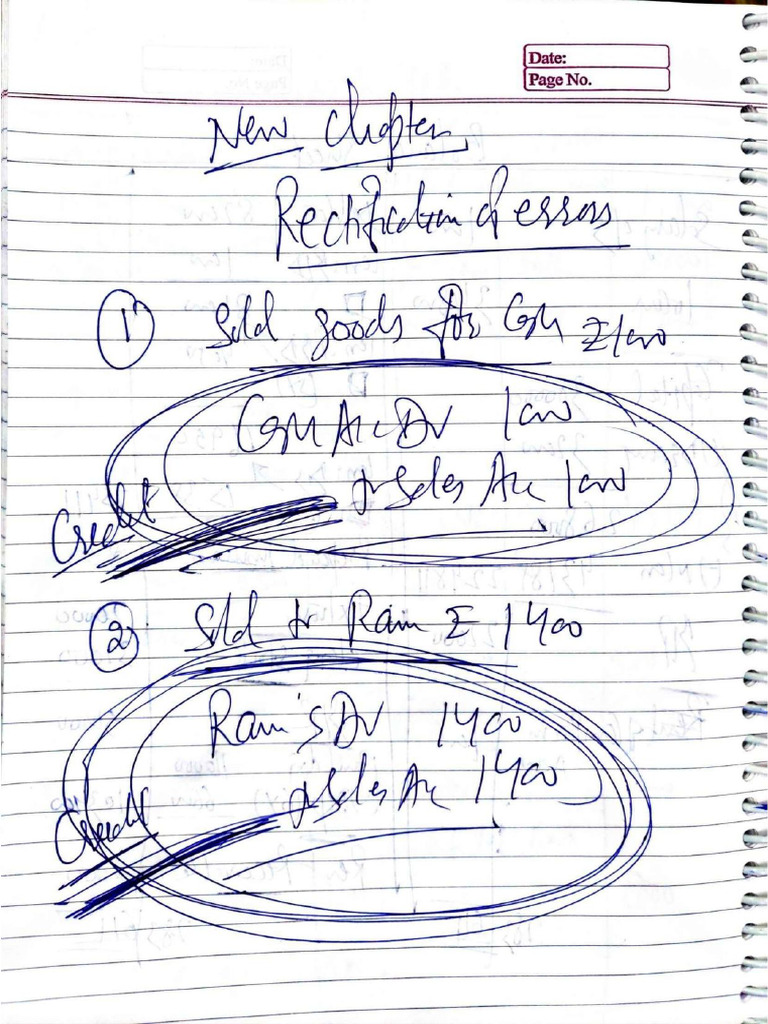 Date:
Page No.
New Chapter
Rectification of errors
1 Sold goods for Cash ₹1000
Cash A/c Dr 1000
to Sales A/c 1000
Credit
2 Sold to Ram ₹ 1400
Ram's Dr 1400
to Sales A/c 1400
Credit